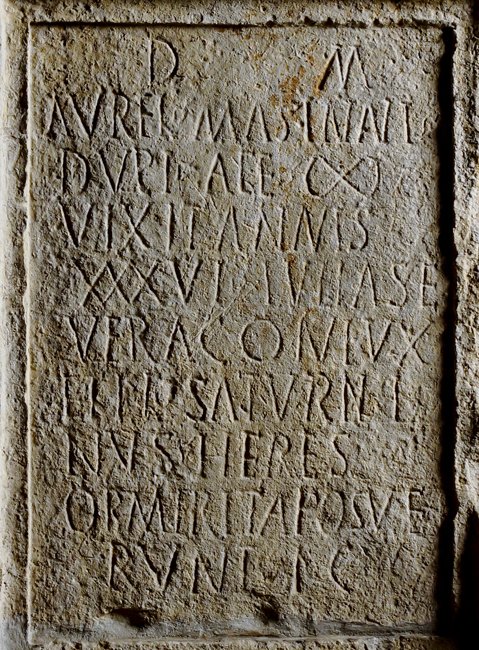 D M
AVREL
DVPL ALE ∞
VIXIT ANNIS
XXXVI IVLIA SE
VERA CONIVX
SATVRNI
NVS HERES
OB MERITA POSVE
RVNT